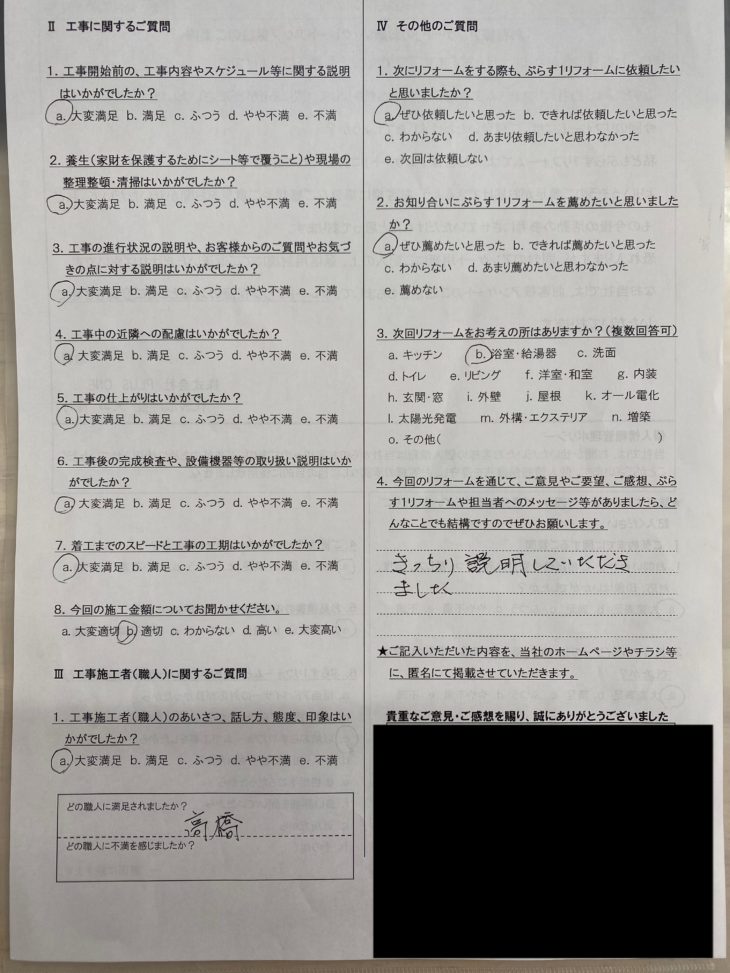 Ⅱ 工事に関するご質問
1. 工事開始前の、工事内容やスケジュール等に関する説明
はいかがでしたか？
a. 大変満足 b. 満足 c. ふつう d. やや不満 e. 不満
2. 養生（家財を保護するためにシート等で覆うこと）や現場の
整理整頓・清掃はいかがでしたか？
a. 大変満足 b. 満足 c. ふつう d. やや不満 e. 不満
3. 工事の進行状況の説明や、お客様からのご質問やお気づ
きの点に対する説明はいかがでしたか？
a. 大変満足 b. 満足 c. ふつう d. やや不満 e. 不満
4. 工事中の近隣への配慮はいかがでしたか？
a. 大変満足 b. 満足 c. ふつう d. やや不満 e. 不満
5. 工事の仕上がりはいかがでしたか？
a. 大変満足 b. 満足 c. ふつう d. やや不満 e. 不満
6. 工事後の完成検査や、設備機器等の取り扱い説明はいか
がでしたか？
a. 大変満足 b. 満足 c. ふつう d. やや不満 e. 不満
7. 着工までのスピードと工事の工期はいかがでしたか？
a. 大変満足 b. 満足 c. ふつう d. やや不満 e. 不満
8. 今回の施工金額についてお聞かせください。
a. 大変適切 b. 適切 c. わからない d. 高い e. 大変高い
Ⅲ 工事施工者（職人）に関するご質問
1. 工事施工者（職人）のあいさつ、話し方、態度、印象はい
かがでしたか？
a. 大変満足 b. 満足 c. ふつう d. やや不満 e. 不満
どの職人に満足されましたか？
高橋
どの職人に不満を感じましたか？
Ⅳ その他のご質問
1. 次にリフォームをする際も、ぷらす1リフォームに依頼したい
と思いましたか？
a. ぜひ依頼したいと思った b. できれば依頼したいと思った
c. わからない d. あまり依頼したいと思わなかった
e. 次回は依頼しない
2. お知り合いにぷらす1リフォームを薦めたいと思いました
か？
a. ぜひ薦めたいと思った b. できれば薦めたいと思った
c. わからない d. あまり薦めたいと思わなかった
e. 薦めない
3. 次回リフォームをお考えの所はありますか？（複数回答可）
a. キッチン b. 浴室・給湯器 c. 洗面
d. トイレ e. リビング f. 洋室・和室 g. 内装
h. 玄関・窓 i. 外壁 j. 屋根 k. オール電化
l. 太陽光発電 m. 外構・エクステリア n. 増築
o. その他（ ）
4. 今回のリフォームを通じて、ご意見やご要望、ご感想、ぷら
す1リフォームや担当者へのメッセージ等がありましたら、ど
んなことでも結構ですのでぜひお願いします。
きっちり説明していただき
ました
★ご記入いただいた内容を、当社のホームページやチラシ等
に、匿名にて掲載させていただきます。
貴重なご意見・ご感想を賜り、誠にありがとうございました